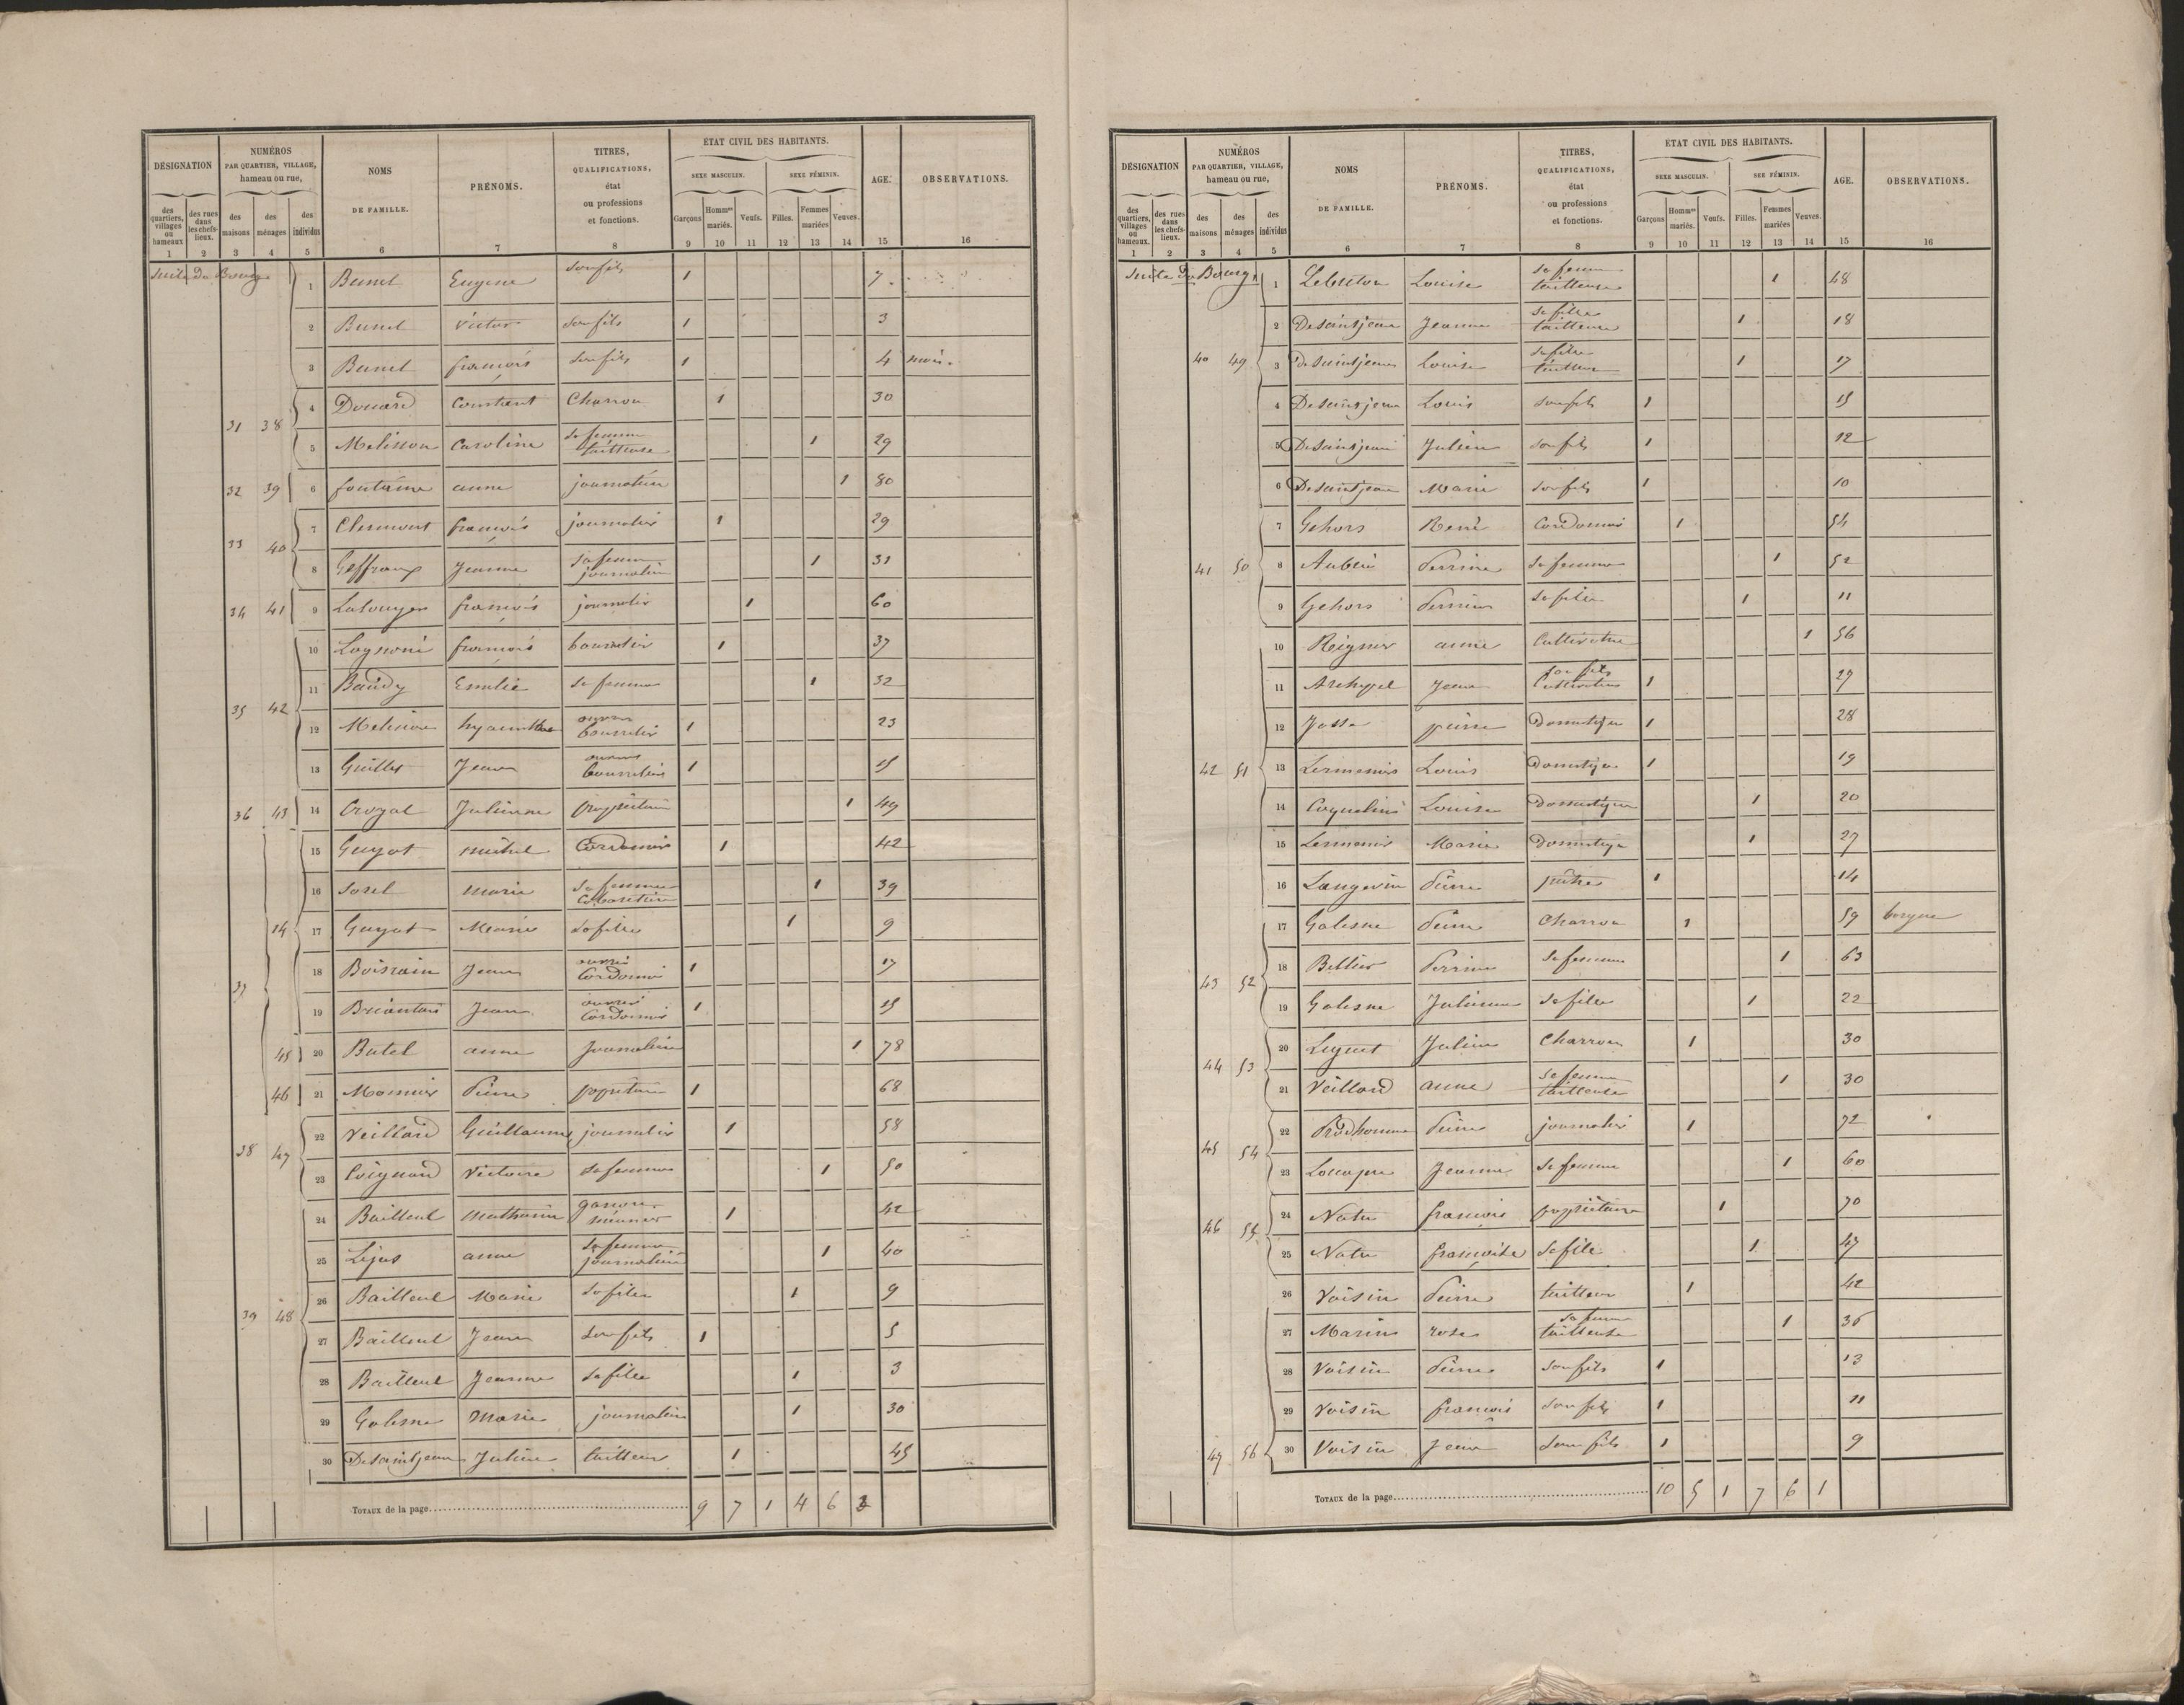 DÉSIGNATION
NUMÉROS PAR QUARTIER, VILLAGE, hameau ou rue,
NOMS DE FAMILLE.
PRÉNOMS.
TITRES, QUALIFICATIONS, état ou professions et fonctions.
ETAT CIVIL DES HABITANTS.
SEXE MASCULIN. SEXE FÉMININ.
AGE.
OBSERVATIONS.
des quartiers, villages ou hameaux des rues dans les chefs-lieux. des maisons des ménages des individus Garçons Hommes mariés. Veufs. Filles. Femmes mariées Veuves.
1 2 3 4 5 6 7 8 9 10 11 12 13 14 15 16
Suite du Bourg
1 Bunel Eugene son fils 1 7
2 Bunel Victor son fils 1 3
3 Bunel françois son fils 1 4 mois.
31 38 4 Douard Constant Charron 1 30
5 Melisson Caroline sa femme tailleuse 1 29
32 39 6 fontaine anne journalière 1 80
33 40 7 Clermont françois journalier 1 29
8 Geffraux Jeanne sa femme journalière 1 31
34 41 9 françois journalier 1 60
10 françois bourrelier 1 37
35 42 11 Baudy Emilie sa femme 1 32
12 hyacinthe ouvrier bourrelier 1 23
13 Guillet Jean ouvrier bourrelier 1 15
36 43 14 Croyal Julienne propriétaire 1 49
37 44 15 Guyot michel Cordonnier 1 42
16 Sorel marie sa femme 1 39
17 Guyot Marie sa fille 1 9
18 Boisrain Jean ouvrier Cordonnier 1 17
19 Briantais Jean ouvrier Cordonnier 1 15
45 20 Butel anne Journalière 1 78
46 21 Monnier Pierre propriétaire 1 68
38 47 22 Veillard Guillaume journalier 1 58
23 Coignard Victoire sa femme 1 50
24 Bailleul Mathurin garçon meunier 1 42
25 Lejas anne sa femme journalière 1 40
39 48 26 Bailleul Marie sa fille 1 9
27 Bailleul Jean son fils 1 5
28 Bailleul Jeanne sa fille 1 3
29 Galesne Marie journalière 1 30
30 Desaintjean Julien tailleur 1 45
TOTAUX de la page 9 7 1 4 6 3
DÉSIGNATION
NUMÉROS PAR QUARTIER, VILLAGE, hameau ou rue,
NOMS DE FAMILLE.
PRÉNOMS.
TITRES, QUALIFICATIONS, état ou professions et fonctions.
ETAT CIVIL DES HABITANTS.
SEXE MASCULIN. SEE FÉMININ.
AGE.
OBSERVATIONS.
des quartiers, villages ou hameaux. des rues dans les chefs-lieux. des maisons des ménages des individus Garçons Hommes mariés. Veufs. Filles. Femmes mariées Veuves.
1 2 3 4 5 6 7 8 9 10 11 12 13 14 15 16
Suite du Bourg
1 Lebreton Louise sa femme tailleuse 1 48
2 Desaintjean Jeanne sa fille tailleuse 1 18
40 49 3 Desaintjean Louise sa fille tailleuse 1 17
4 Desaintjean Louis son fils 1 15
5 Desaintjean Julien son fils 1 12
6 Desaintjean Marie son fils 1 10
7 Gehors René Cordonnier 1 54
41 50 8 Aubin Perrine sa femme 1 52
9 Gehors Perrine sa fille 1 11
10 Reigner anne Cultivatrice 1 56
11 Jean son fils Cultivateur 1 29
12 Josse pierre Domestique 1 28
42 51 13 Lermenier Louis Domestique 1 19
14 Coquelin Louise Domestique 1 20
15 Lermenier Marie Domestique 1 27
16 Langevin Pierre 1 14
17 Galesne Pierre Charron 1 59 borgne
43 52 18 Bellier Perrine sa femme 1 63
19 Galesne Julienne sa fille 1 22
44 53 20 Julien Charron 1 30
21 Veillard anne sa femme tailleuse 1 30
45 54 22 Prodhomme Pierre journalier 1 72
23 Jeanne sa femme 1 60
46 55 24 Natu françois propriétaire 1 70
25 Natu françoise sa fille 1 47
26 Voisin Pierre tailleur 1 42
27 Marin rose sa femme tailleuse 1 36
28 Voisin Pierre son fils 1 13
29 Voisin françois son fils 1 11
47 56 30 Voisin Jean son fils 1 9
TOTAUX de la page 10 5 1 7 6 1